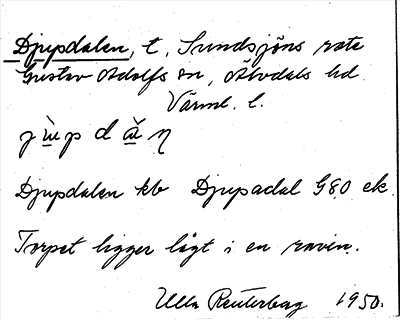 Djupdalen, t, Sundsjöns rote
Gustav Adolfs sn, Älvdals hd
Värml. l.
Djupdalen kb Djupadal G80 ek.
Torpet ligger lågt i en ravin.
Ulla Reuterberg 1950.